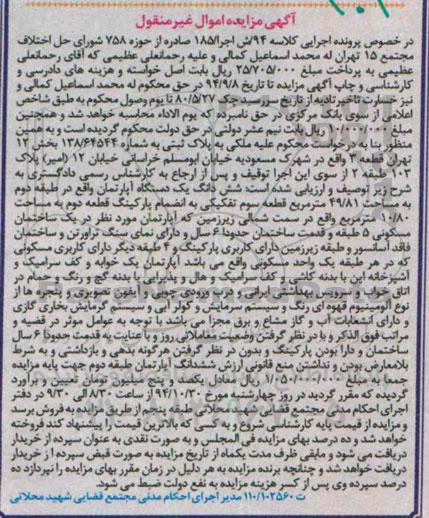 آگهی مزایده اموال غیر منقول
در خصوص پرونده اجرایی کلاسه ۹۴/ش اجرا/۱۸۵ صادره از حوزه ۷۵۸ شورای حل اختلاف
مجتمع ۱۵ تهران له محمد اسماعیل کمالی و علیه رحمانعلی عظیمی که آقای رحمانعلی
عظیمی به پرداخت مبلغ ۲۵/۷۰۵/۰۰۰ ریال بابت اصل خواسته و هزینه های دادرسی و
کارشناسی و چاپ آگهی مزایده تا تاریخ ۹۴/۹/۸ در حق محکوم له محمد اسماعیل کمالی و
نیز خسارت تاخیر تادیه از تاریخ سررسید چک ۸۰/۵/۲۷ تا یوم وصول محکوم به طبق شاخص
اعلامی از سوی بانک مرکزی در حق نامبرده که یوم الاداء محاسبه خواهد شد و همچنین
مبلغ ریال بابت نیم عشر دولتی در حق دولت محکوم گردیده است و به همین
منظور بنا به درخواست محکوم علیه ملکی به پلاک ثبتی به شماره ۱۳۸/۶۴۵۴۴ بخش ۱۲
تهران قطعه ۳ واقع در شهرک مسعودیه خیابان ابومسلم خراسانی خیابان ۱۲ (امیر) پلاک
۱۰۳ طبقه ۲ از سوی این اجرا توقیف و پس از ارجاع به کارشناس رسمی دادگستری به
شرح زیر توصیف و ارزیابی شده است: شش دانگ یک دستگاه آپارتمان واقع در طبقه دوم
به مساحت ۴۹/۸۱ مترمربع قطعه سوم تفکیکی به انضمام پارکینگ قطعه دوم به مساحت
۱۰/۸۰ مترمربع واقع در سمت شمالی زیرزمین که آپارتمان مورد نظر در یک ساختمان
مسکونی ۵ طبقه و قدمت ساختمان حدودا ۶ سال و دارای نمای سنگ تراورتن و ساختمان
فاقد آسانسور و طبقه زیرزمین دارای کاربری پارکینگ و ۴ طبقه دیگر دارای کاربری مسکونی
که در هر طبقه یک واحد مسکونی واقع می باشد آپارتمان یک خوابه و کف سرامیک و
آشپزخانه اپن با بدنه کاشی و کف سرامیک و هال و پذیرایی با بدنه گچ و رنگ و حمام در
اتاق خواب و سرویس بهداشتی ایرانی و درب ورودی چوبی و آیفون تصویری و پنجره ها از
نوع آلومینیوم قهوه ای رنگ و سیستم سرمایش و کولر آبی و سیستم گرمایش بخاری گازی
و دارای انشعابات آب و گاز مشاع و برق مجزا می باشد با توجه به عوامل موثر در قضیه و
مراتب فوق الذکر و با در نظر گرفتن وضعیت معاملاتی روز و با عنایت به قدمت حدودا ۶ سال
ساختمان و دارا بودن پارکینگ و بدون در نظر گرفتن هرگونه بدهی و بازداشتی و به شرط
بلامعارض بودن و نداشتن منع قانونی ارزش ششدانگ آپارتمان طبقه دوم جهت پایه مزایده
جمعا به مبلغ ۱/۰۵۰/۰۰۰/۰۰۰ ریال معادل یکصد و پنج میلیون تومان تعیین و برآورد
گردیده که مقرر گردید در روز چهارشنبه مورخ ۹۴/۱۰/۳۰ از ساعت ۸/۳۰ الی ۹/۳۰ در دفتر
اجرای احکام مدنی مجتمع قضایی شهید محلاتی طبقه پنجم از طریق مزایده به فروش برسد
و مزایده از قیمت پایه کارشناسی شروع و به کسی که بالاترین قیمت را پیشنهاد کند فروخته
خواهد شد و ده درصد بهای مزایده فی المجلس و به صورت نقدی به عنوان سپرده از خریدار
دریافت می شود و مابقی ظرف مدت یکماه از تاریخ مزایده به صورت قبض سپرده از خریدار
دریافت خواهد شد و چنانچه برنده مزایده به هر دلیل در زمان مقرر بهای مزایده را نپردازد ده
درصد سپرده وی پس از کسر هزینه مزایده به نفع دولت ضبط می شود.
ت ۱۱۰/۱۰۲۵۶۰ مدیر اجرای احکام مدنی مجتمع قضایی شهید محلاتی